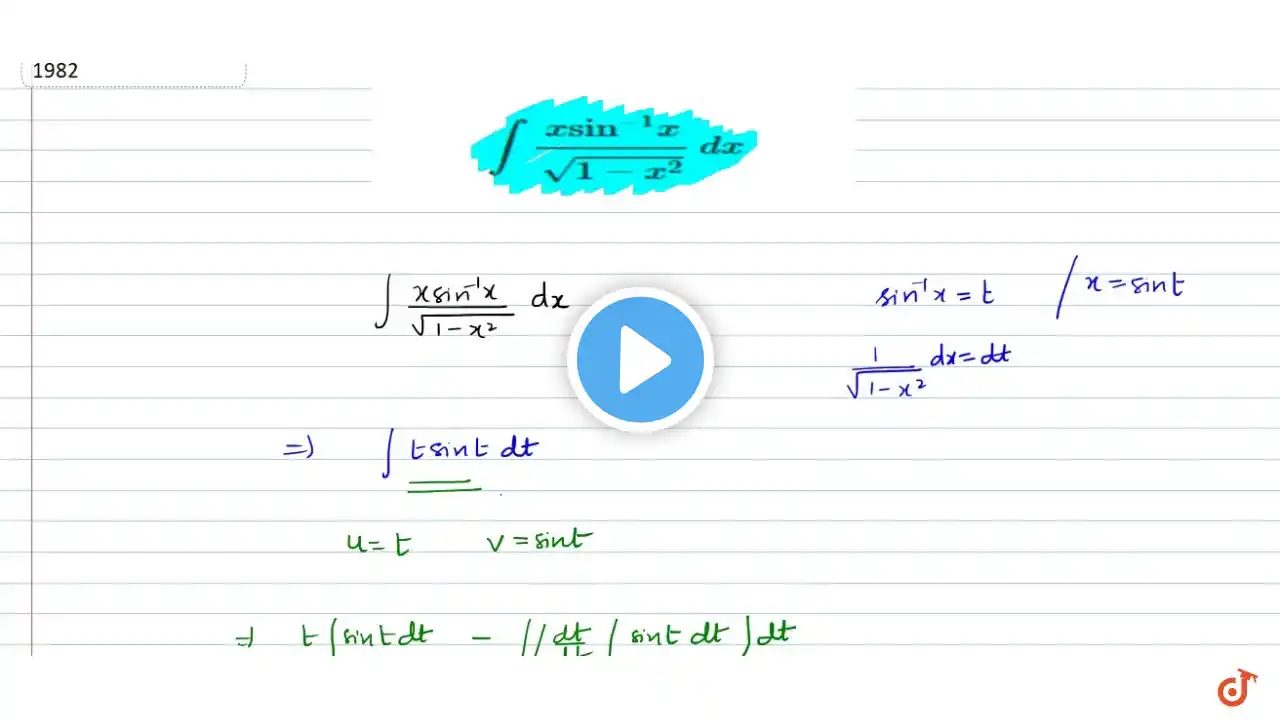 1982
∫ x sin⁻¹x / √(1 − x²) dx
∫ x sin⁻¹x / √(1 − x²) dx
sin⁻¹x = t / x = sint
1 / √(1 − x²) dx = dt
⇒ ∫ t sint dt
u = t v = sint
⇒ t ∫ sint dt − ∫ ( dt/dt ∫ sint dt ) dt